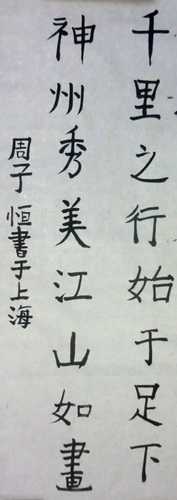 千里之行始于足下
神州秀美江山如畫
周子恒書于上海